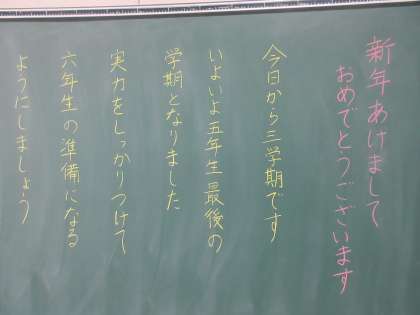 新年あけまして
おめでとうございます
今日から三学期です
いよいよ五年生最後の
学期となりました
実力をしっかりつけて
六年生の準備になる
ようにしましょう